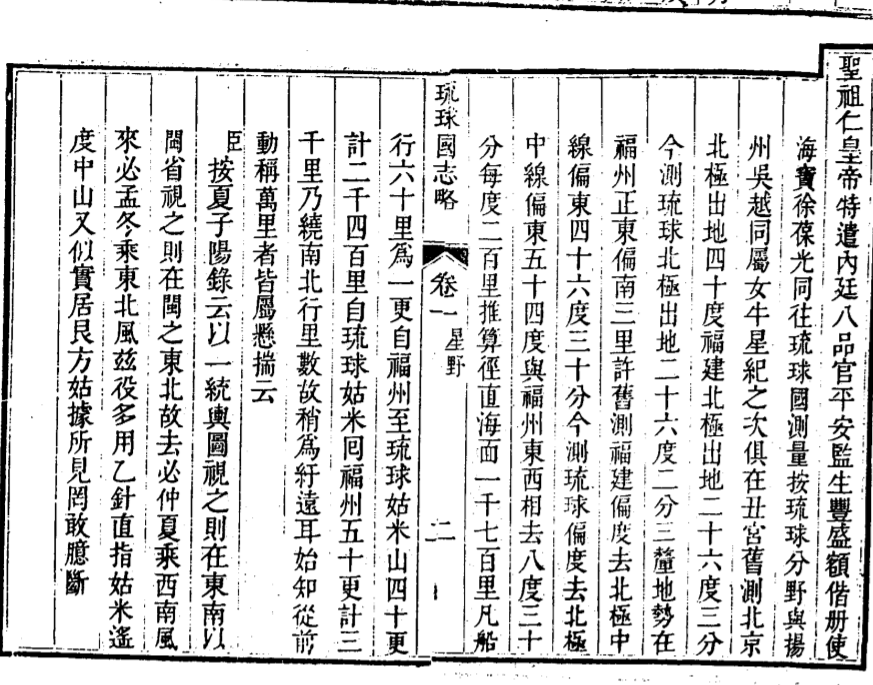 聖祖仁皇帝特遣內廷八品官平安監生豐盛額偕册使
海寶徐葆光同往琉球國測量按琉球分野與揚
州吳越同屬女牛星紀之次俱在丑宮舊測北京
北極出地四十度福建北極出地二十六度三分
今測琉球北極出地二十六度二分三釐地勢在
福州正東偏南三里許舊測福建偏度去北極中
線偏東四十六度三十分今測琉球偏度去北極
中線偏東五十四度與福州東西相去八度三十
分每度二百里推算徑直海面一千七百里凡船
琉球國志略
卷一
星野
二
行六十里爲一更自福州至琉球姑米山四十更
計二千四百里自琉球姑米囘福州五十更計三
千里乃繞南北行里數故稍爲紆遠耳始知從前
動稱萬里者皆屬懸揣云
臣按夏子陽錄云以一統輿圖視之則在東南以
閩省視之則在閩之東北故去必仲夏乘西南風
來必孟冬乘東北風兹役多用乙針直指姑米遙
度中山又似實居艮方姑據所見罔敢臆斷